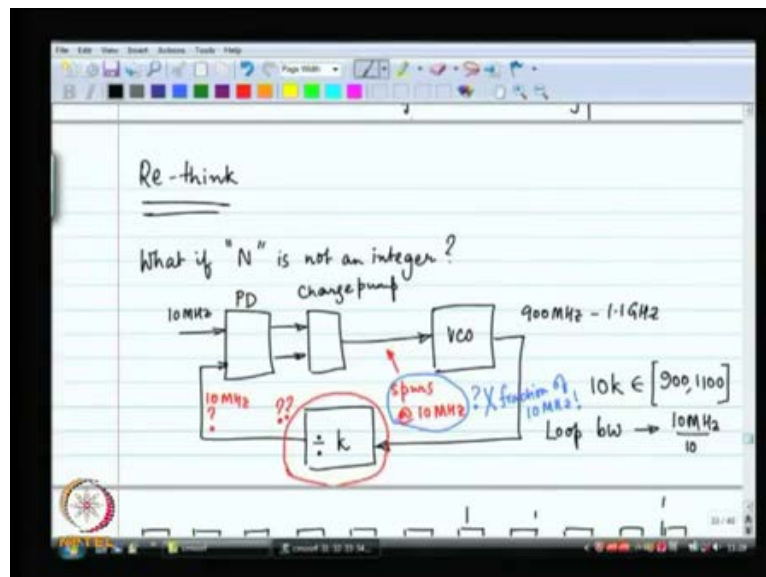 File Edit View Insert Actions Tools Help
Page Width
B I
Re-think
What if "N" is not an integer?
PD
Charge pump
10 MHz
VCO
900 MHz - 1.1 GHz
10 MHz
?
??
÷ k
spurs
@ 10 MHz
? X fraction of
10 MHz!
10k ∈ [900, 1100]
Loop bw → 10 MHz
10
NPTEL